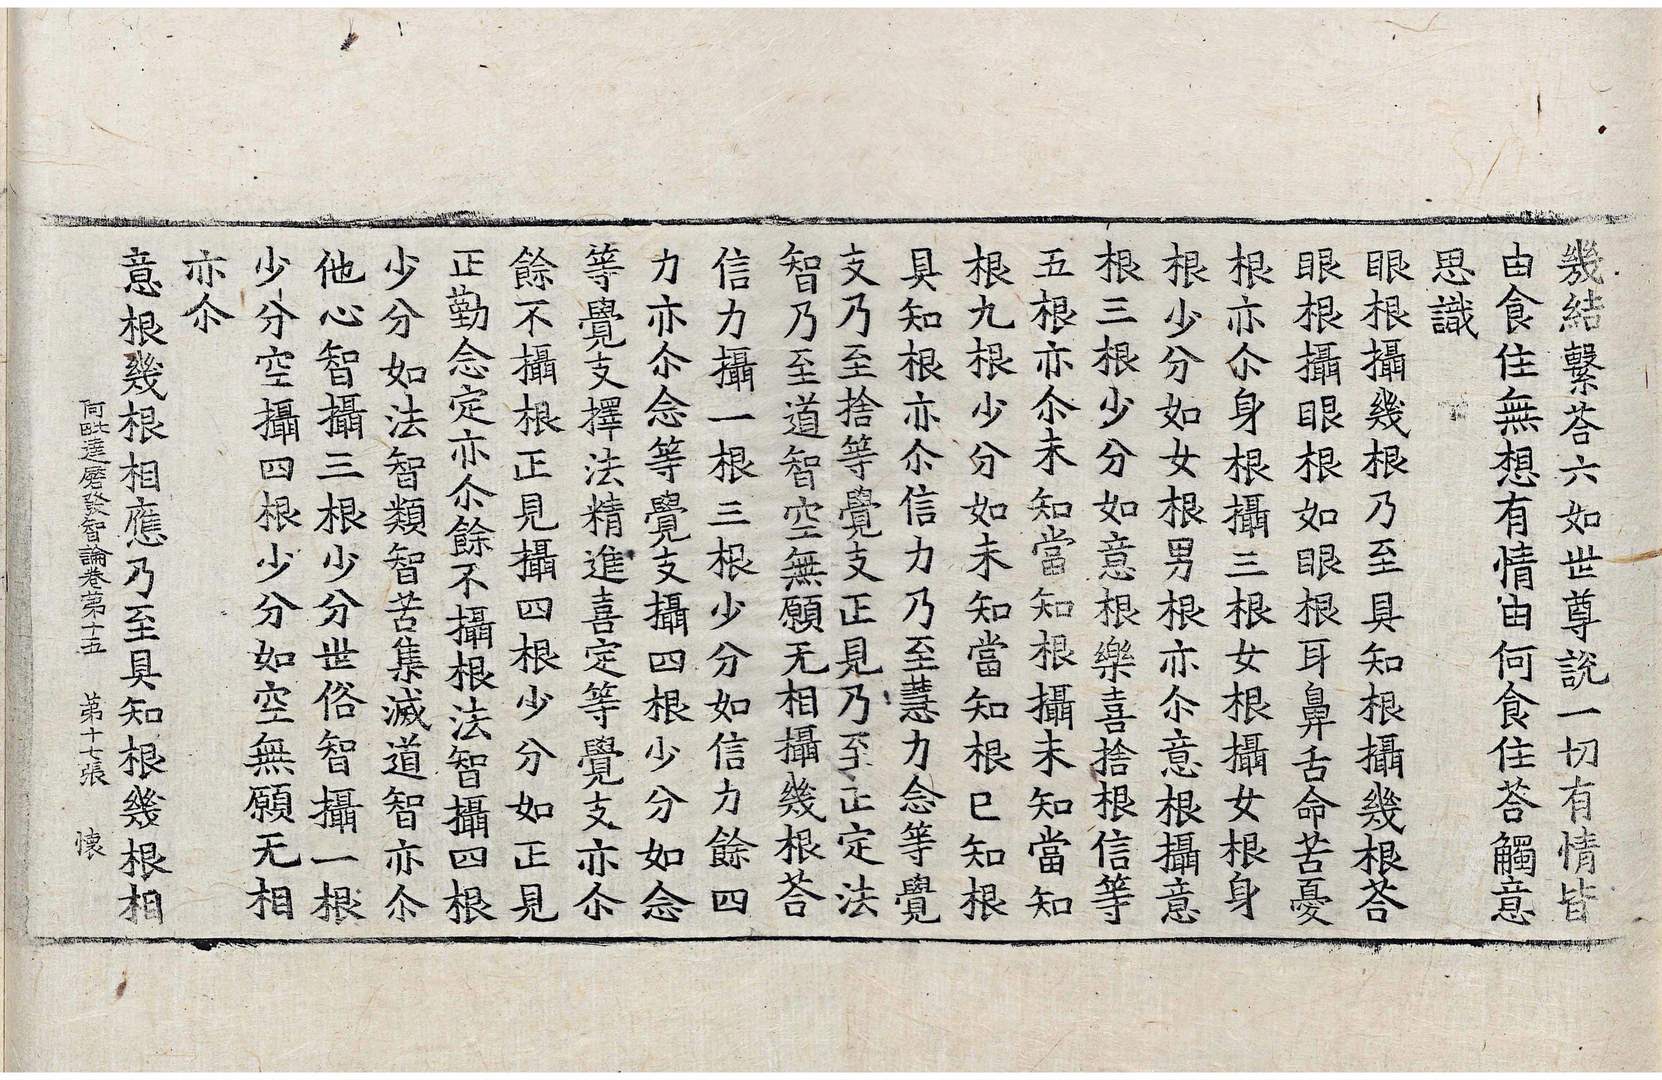 幾結繫荅六如世尊說一切有情皆
由食住無想有情由何食住荅觸意
思識
眼根攝幾根乃至具知根攝幾根荅
眼根攝眼根如眼根耳鼻舌命苦憂
根亦尒身根攝三根女根攝女根身
根少分如女根男根亦尒意根攝意
根三根少分如意根樂喜捨根信等
五根亦尒未知當知根攝未知當知
根九根少分如未知當知根已知根
具知根亦尒信力乃至慧力念等覺
支乃至捨等覺支正見乃至正定法
智乃至道智空無願无相攝幾根荅
信力攝一根三根少分如信力餘四
力亦尒念等覺支攝四根少分如念
等覺支擇法精進喜定等覺支亦尒
餘不攝根正見攝四根少分如正見
正勤念定亦尒餘不攝根法智攝四根
少分如法智類智苦集滅道智亦尒
他心智攝三根少分世俗智攝一根
少分空攝四根少分如空無願无相
亦尒
意根幾根相應乃至具知根幾根相
阿毗達磨發智論卷第十五 第十七張 懷